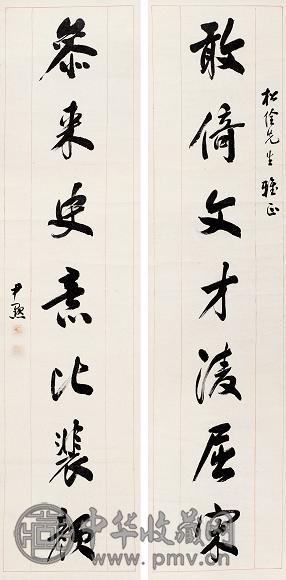 松佺先生雅正
敢倚文才淩屈宋
叅来史意比裴顔
尹默
中华收藏网
www.pmv.cn